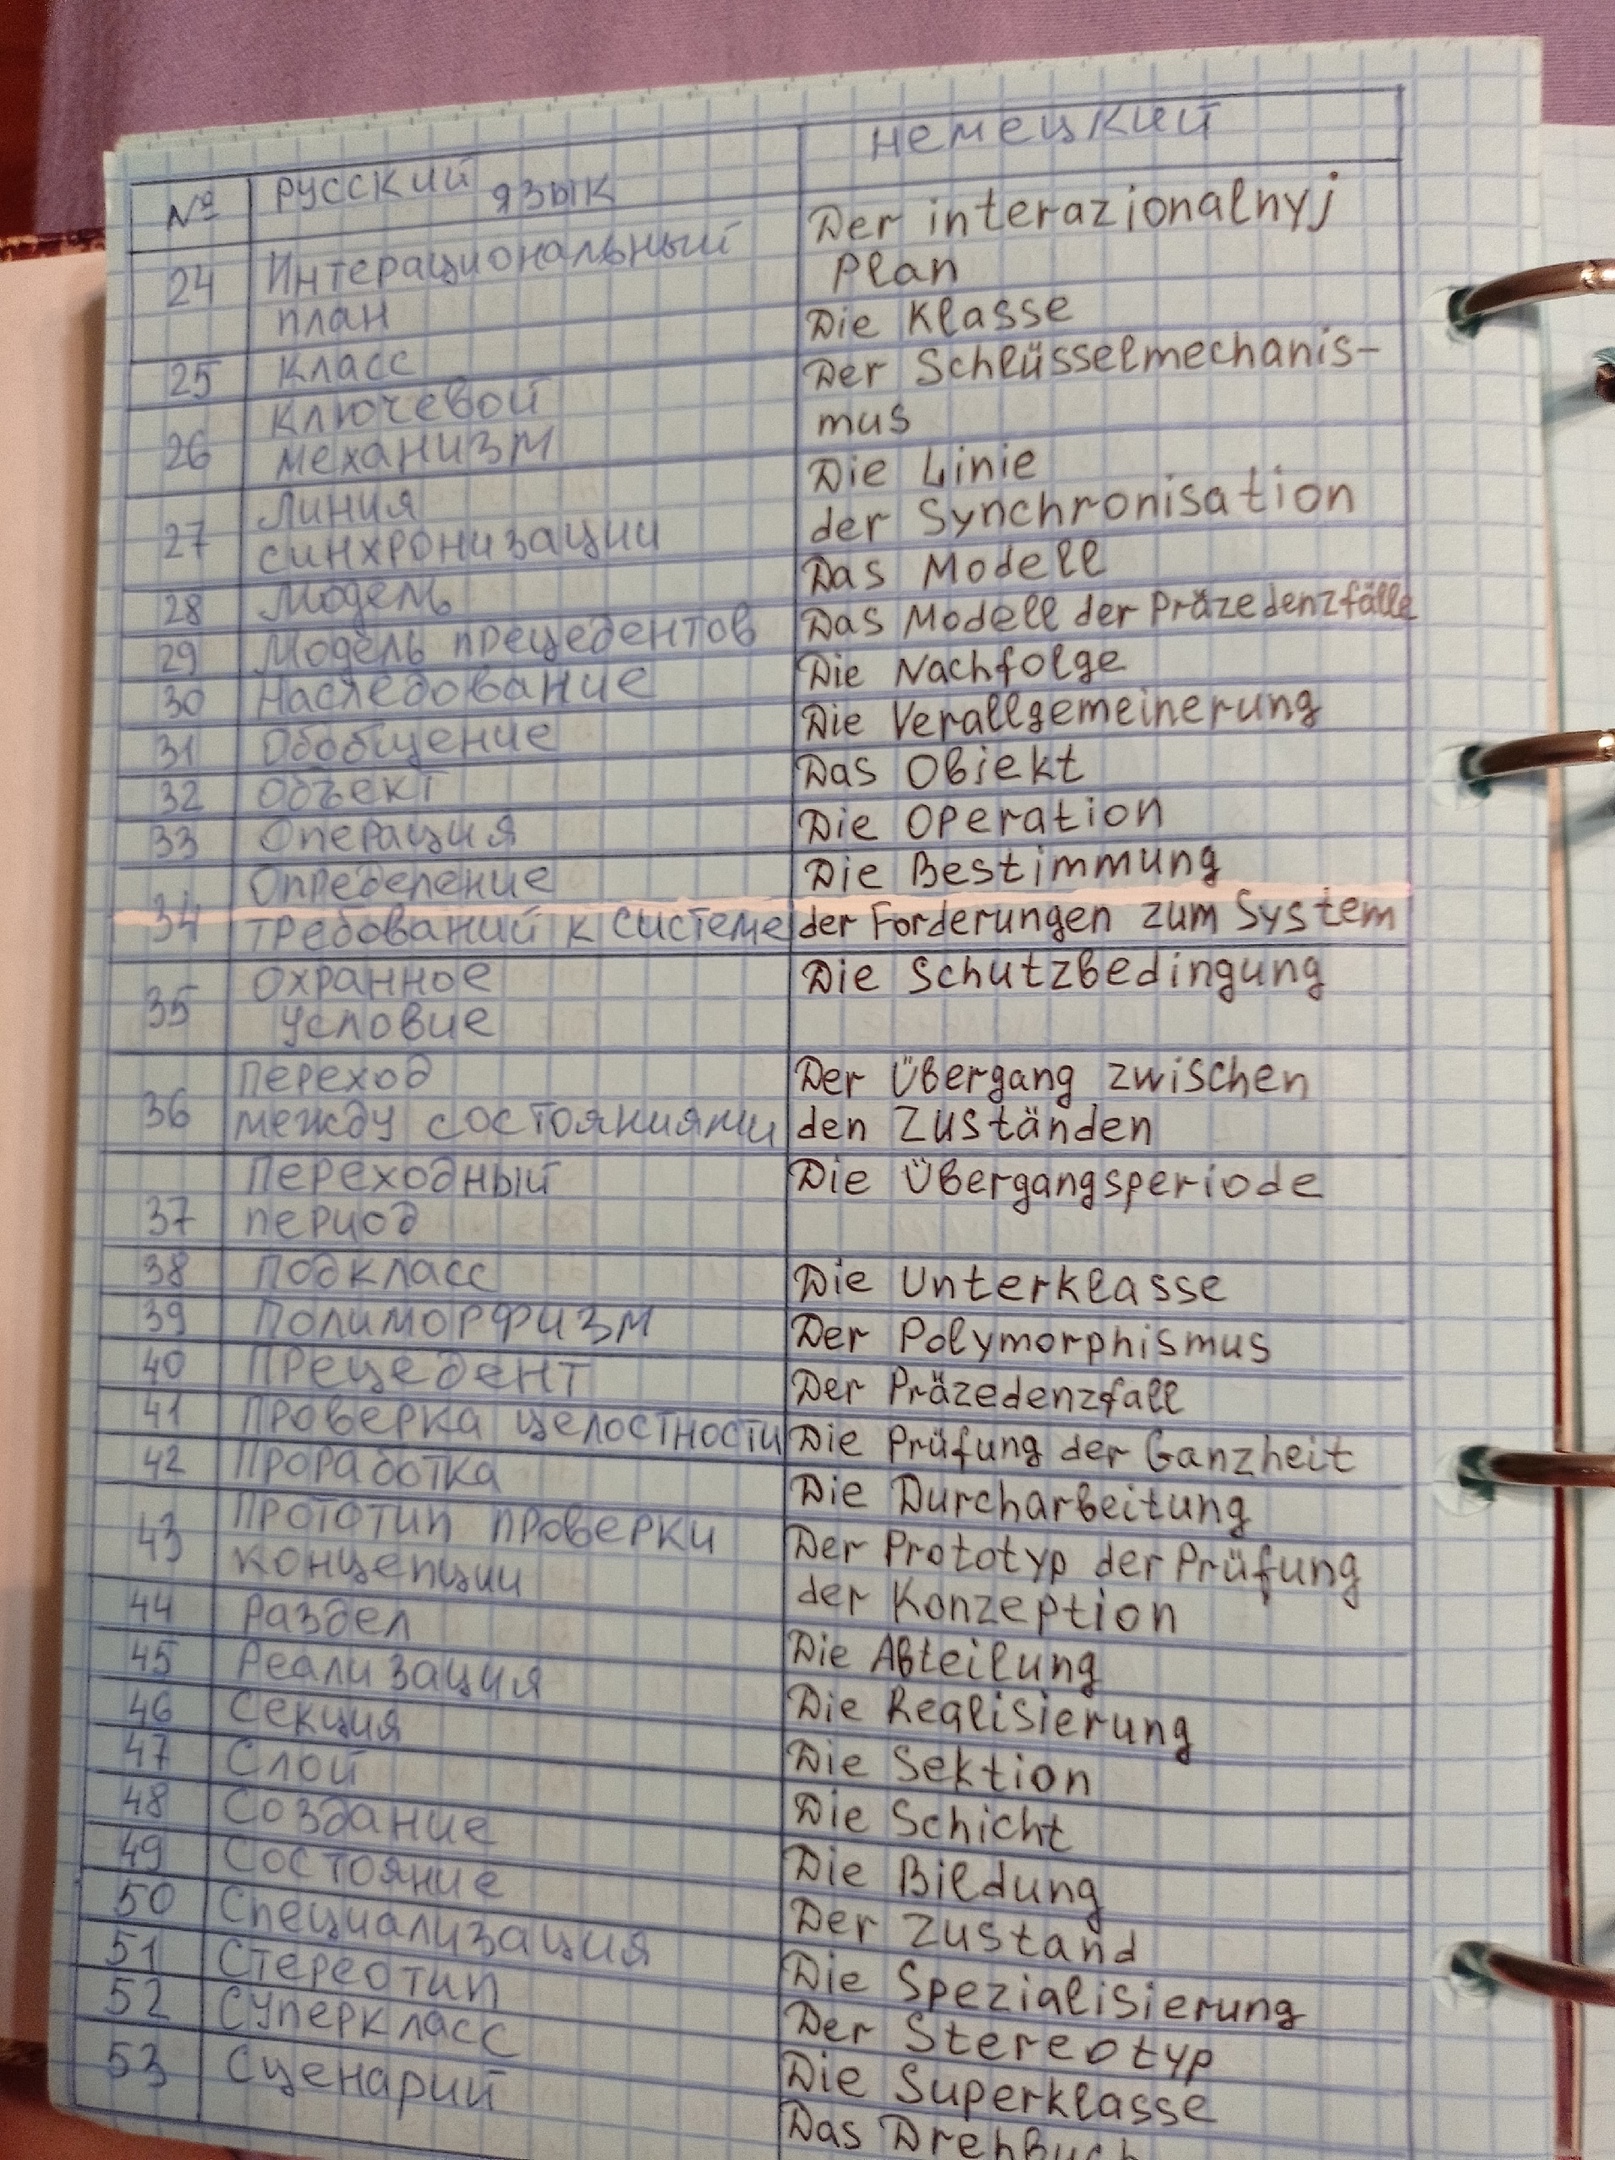 № русский язык немецкий
24 Интерациональный Der interazionalnyj
план Plan
25 класс Die Klasse
26 ключевой Der Schlüsselmechanis-
механизм mus
27 линия Die Linie
синхронизации der Synchronisation
28 Модель Das Modell
29 Модель прецедентов Das Modell der Präzedenzfälle
30 Наследование Die Nachfolge
31 Обобщение Die Verallgemeinerung
32 Объект Das Objekt
33 Операция Die Operation
34 Определение Die Bestimmung
требований к системе der Forderungen zum System
35 Охранное Die Schutzbedingung
условие
36 переход Der Übergang zwischen
между состояниями den Zuständen
37 переходный Die Übergangsperiode
период
38 подкласс Die Unterklasse
39 полиморфизм Der Polymorphismus
40 прецедент Der Präzedenzfall
41 проверка целостности Die Prüfung der Ganzheit
42 проработка Die Durcharbeitung
43 прототип проверки Der Prototyp der Prüfung
концепции der Konzeption
44 раздел Die Abteilung
45 реализация Die Realisierung
46 секция Die Sektion
47 Слой Die Schicht
48 Создание Die Bildung
49 Состояние Der Zustand
50 Специализация Die Spezialisierung
51 Стереотип Der Stereotyp
52 Суперкласс Die Superklasse
53 Сценарий Das Drehbuch